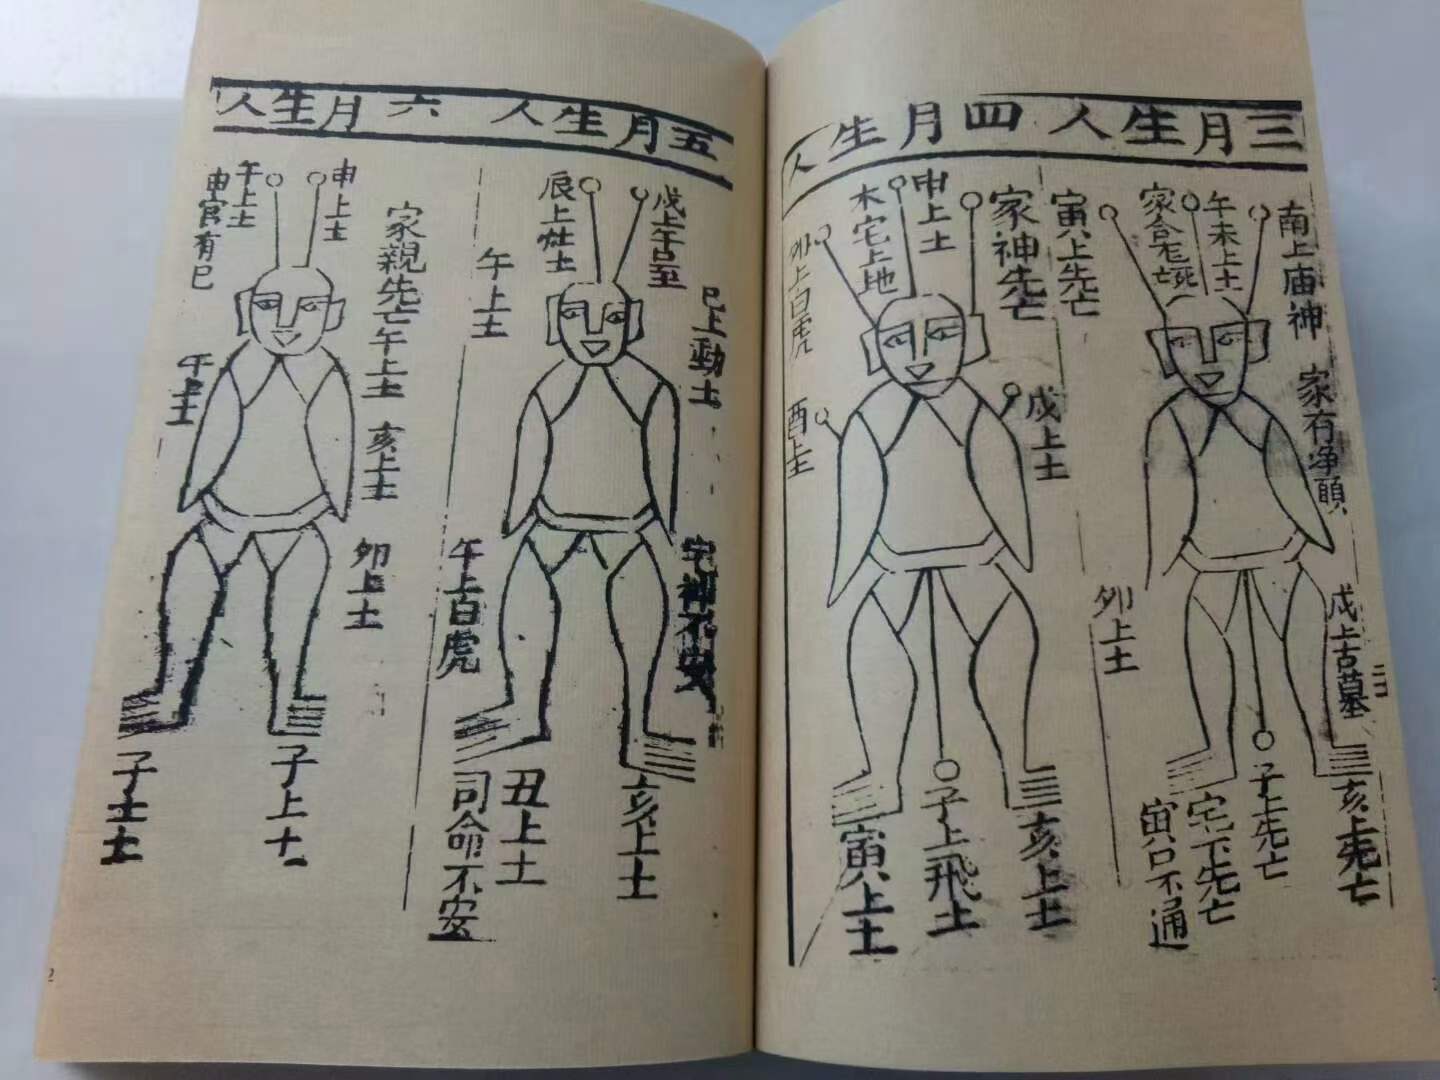 三月生人
南上庙神
家有净願
午未上土
家合宅死亡
寅上先亡
戊上古墓
卯上土
亥上先亡
子上先亡
宅下先亡
寅口不通
四月生人
家神先亡
申上土
木宅上地
卯上白虎
戊上土
酉上土
亥上土
子上飛土
寅上土
五月生人
戊上午口至
辰上灶土
巳上動土
午上土
宅神不安
午上白虎
亥上土
丑上土
司命不安
六月生人
申上土
午上土
申宫有巳
家親先亡午上土
午上土
亥上土
卯上土
子上土
子土土
2